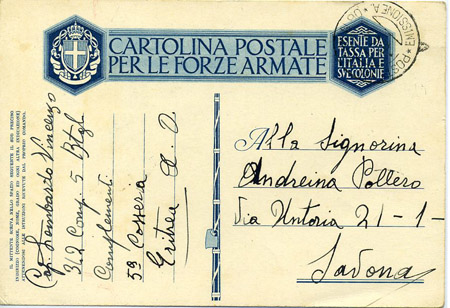 CARTOLINA POSTALE
PER LE FORZE ARMATE
ESENTE DA
TASSA PER
L'ITALIA E
SVE COLONIE
IL MITTENTE SCRIVA NELLO SPAZIO SEGUENTE IL SUO PRECISO
INDIRIZZO (COGNOME, NOME, GRADO ED OGNI ALTRA INDICAZIONE)
ATTENENDOSI ALLE ISTRUZIONI RICEVUTE DAL PROPRIO COMANDO.
Lombardo Vincenzo
312 Comp. 5 Btgl
Complementi
5ª Cosseria
Eritrea A. O
Alla Signorina
Andreina Pollero
Via Untoria 21-1-
Savona